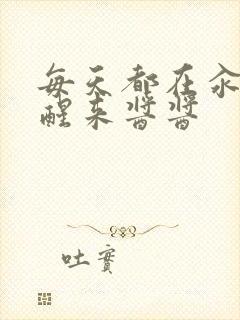 每天都在汆
醒来酱酱
吐實